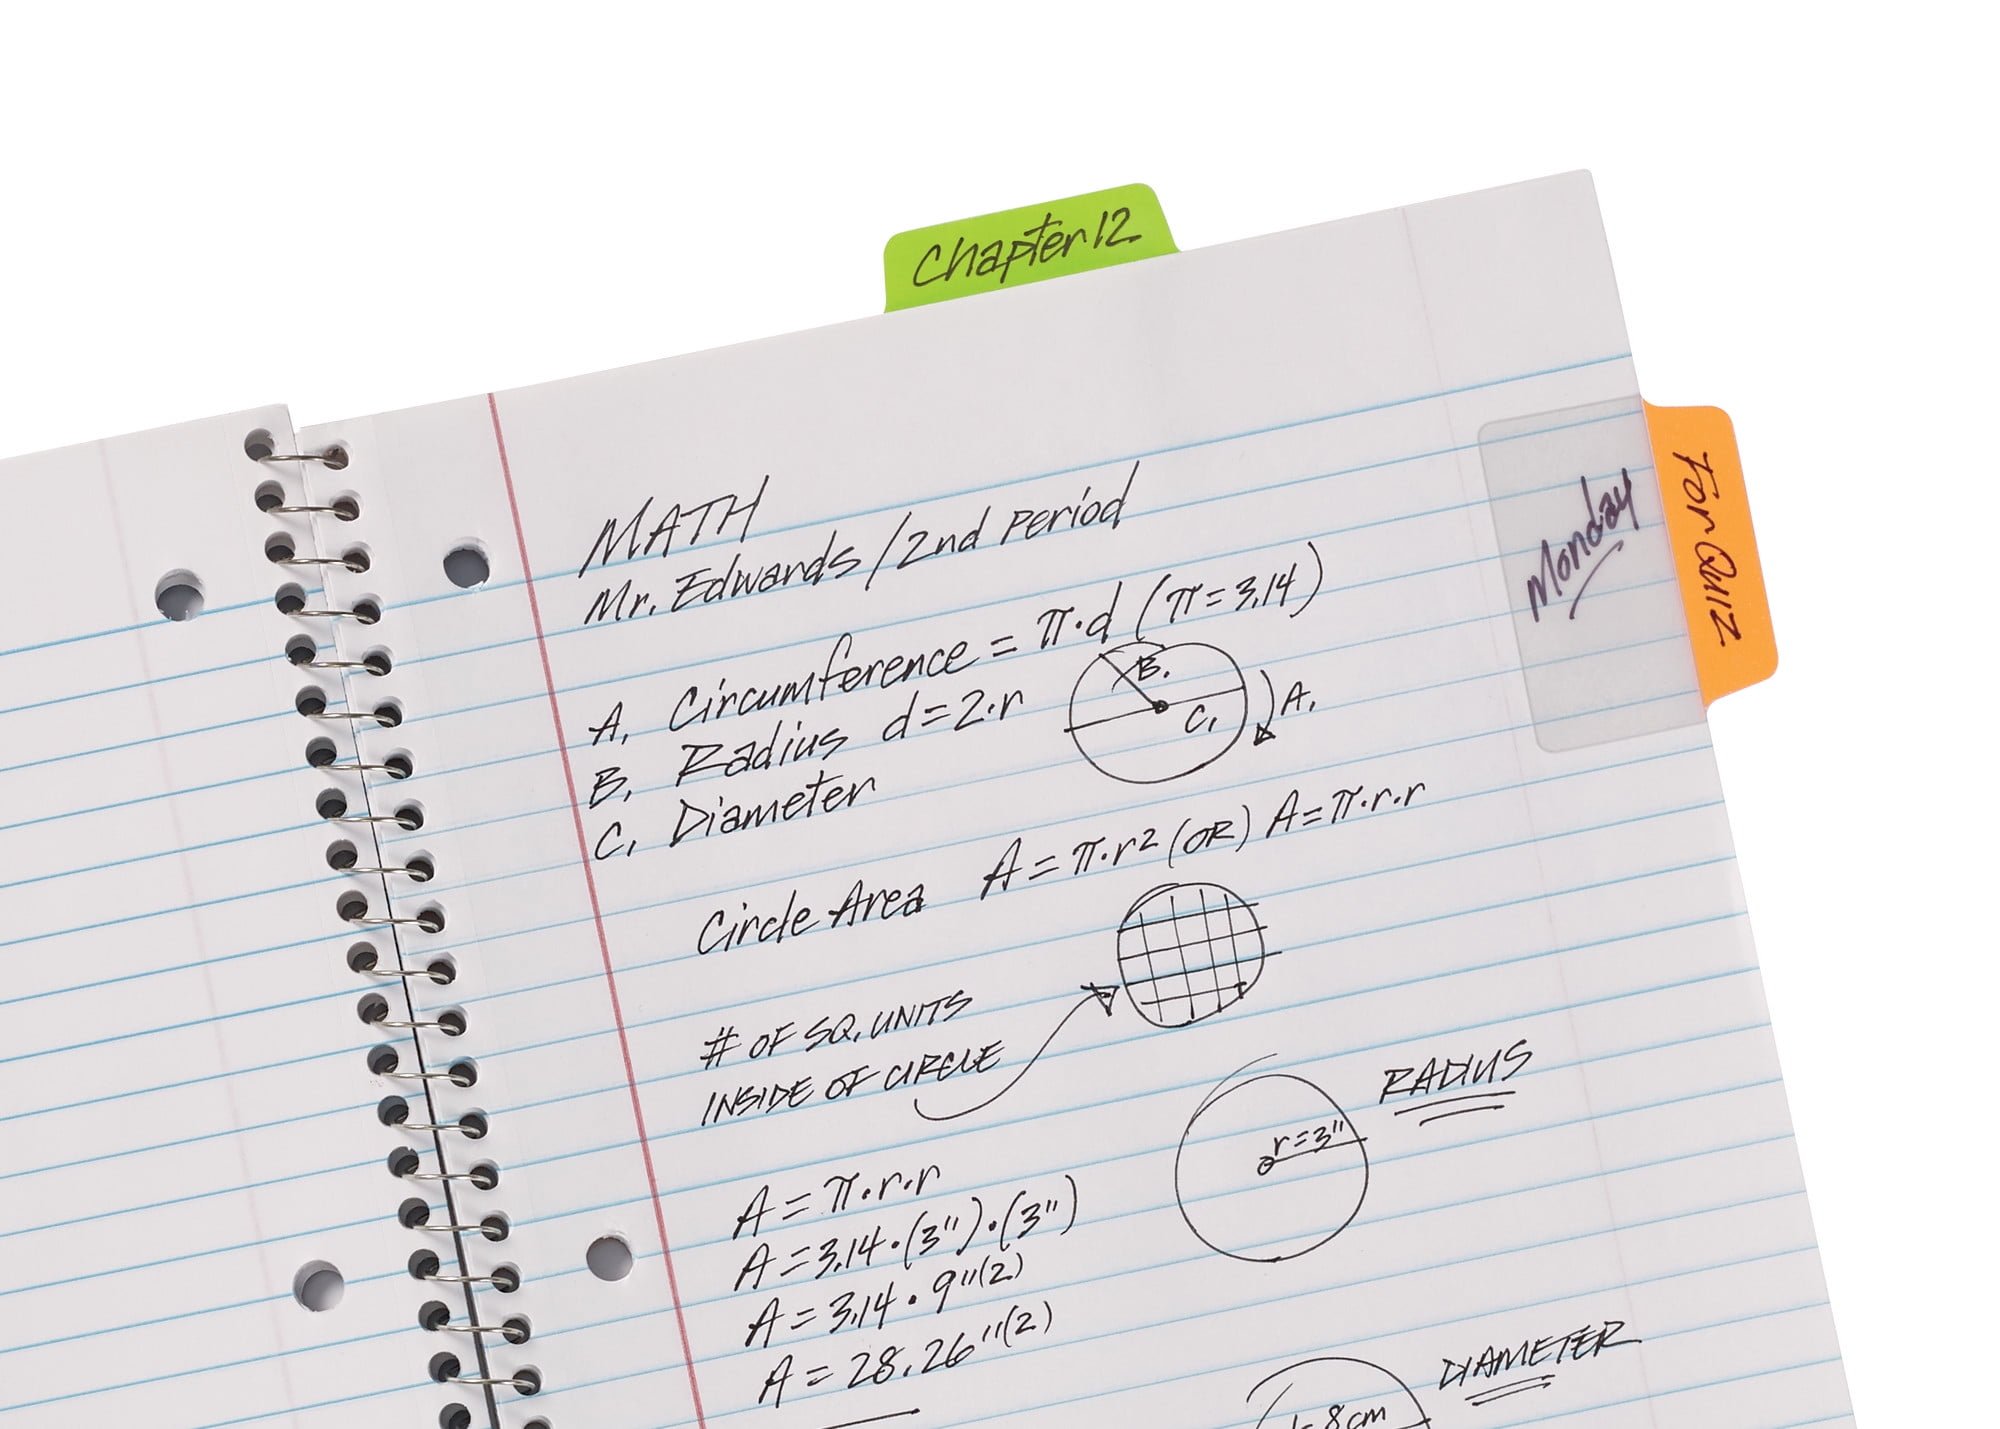 Chapter 12
For Quiz
Monday
MATH
Mr. Edwards / 2nd Period
A. Circumference = π·d (π = 3.14)
B. Radius d = 2·r
C. Diameter
B.
C.
A.
Circle Area A = π·r² (OR) A = π·r·r
# OF SQ. UNITS
INSIDE OF CIRCLE
RADIUS
r = 3"
A = π·r·r
A = 3.14·(3")·(3")
A = 3.14 · 9"(2)
A = 28.26"(2)
DIAMETER
= 8cm